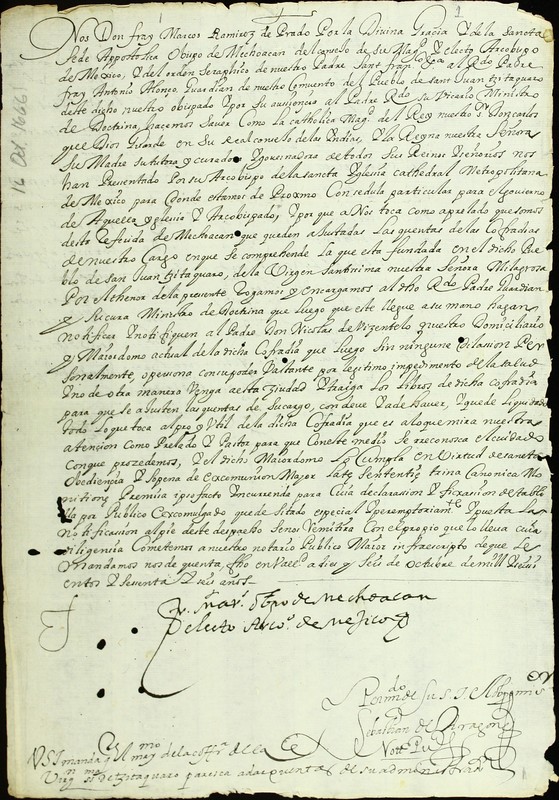 1
Nos Don fray Marcos Ramirez de Prado Por la Divina Gracia Y de la sancta
Sede Appostolica Obispo de Mechoacan del consejo de su Magd. Y electo Arcobispo
de Mexico, Y del orden Seraphico de nuestro Padre Sant franco. al Rdo. Padre
fray Antonio Alonso Guardian de nuestro Convento del Pueblo de sant Juan tzitaquaro
deste dicho nuestro obispado Y por su aussencia al Padre Rdo. su Vicario Ministro
de Doctrina, hacemos Saver Como la catholica Magd. del Rey nuestro sr. Don carlos
que Dios Guarde en su Real consejo de las Indias, Y la Reyna nuestra Señora
su Madre su tutora y curadora Y governadora de todos sus Reinos Y señorios nos
han Presentado Por su Arcobispo de la sancta Yglesia cathedral Metropolitana
de Mexico para Donde estamos de Proximo Con sedula particular para el govierno
de Aquella yglesia Y Arcobispado, Y por que a Nos toca como a prelado que somos
desta referida de Mechoacan que queden ajustadas Las quentas de las Cofradias
de nuestro Cargo en que se comprehende La que esta fundada en el dicho Pue
blo de san Juan tzitaquaro, de la Virgen Santissima nuestra Señora Milagrosa
Por el thenor de la presente Rogamos y encargamos al dho Rdo. Padre Guardian
y Ministro de Doctrina que luego que este llegue a su mano hagan
notificar Y notifiquen al Padre Don Nicolas de nuestro Domiciliario
y Maiordomo actual de la dicha Cofradia que Luego sin ninguna dilasion Per
sonalmente, o persona con su poder Vastante por legitimo impedimento de la salud
Y no de otra manera Venga a esta Ziudad Y traiga Los Libros de dicha cofradia
para que se ajusten las quentas de su cargo, con deve Y a de haver, Y quede Liquidado
todo Lo que toca al pro y Vtil de la dicha Cofradia que es a lo que mira nuestra
atension Como Prelado Y Pastor para que Con este medio se reconosca el cuidado
con que prozedemos, Y el dicho Maiordomo Lo Cumpla en Virtud de sancta
obediencia Y sopena de excomunion Mayor late sententie trina Canonica Mo
nitione Premissa ipso facto Incurrenda para Cuia declarasion Y fixasion de tabli
lla por Publico excomulgado quede Sitado especial Y peremptoriamte. Y puesta La
notificassion al pie deste despacho se nos Remitira Con el propio que lo lleva cuia
diligencia Cometemos a nuestro notario Publico Maior infraescripto de que Le
mandamos nos de quenta, fho en Vallid. a dies y Seis de Octubre de mill Y seis
cientos Y sesenta Y seis años
fr. Mar. Obpo de Mechoacan
electo Arco. de Mexico
Por mdo. de su S. I. el Obpo mi sr.
Sebastian de
Nott. Puco.
V.S.I manda q el mmo de la coffr. de la
Virgn. de tzitaquaro paresca a dar quentas de su administrasn.
16 Oct. 1666